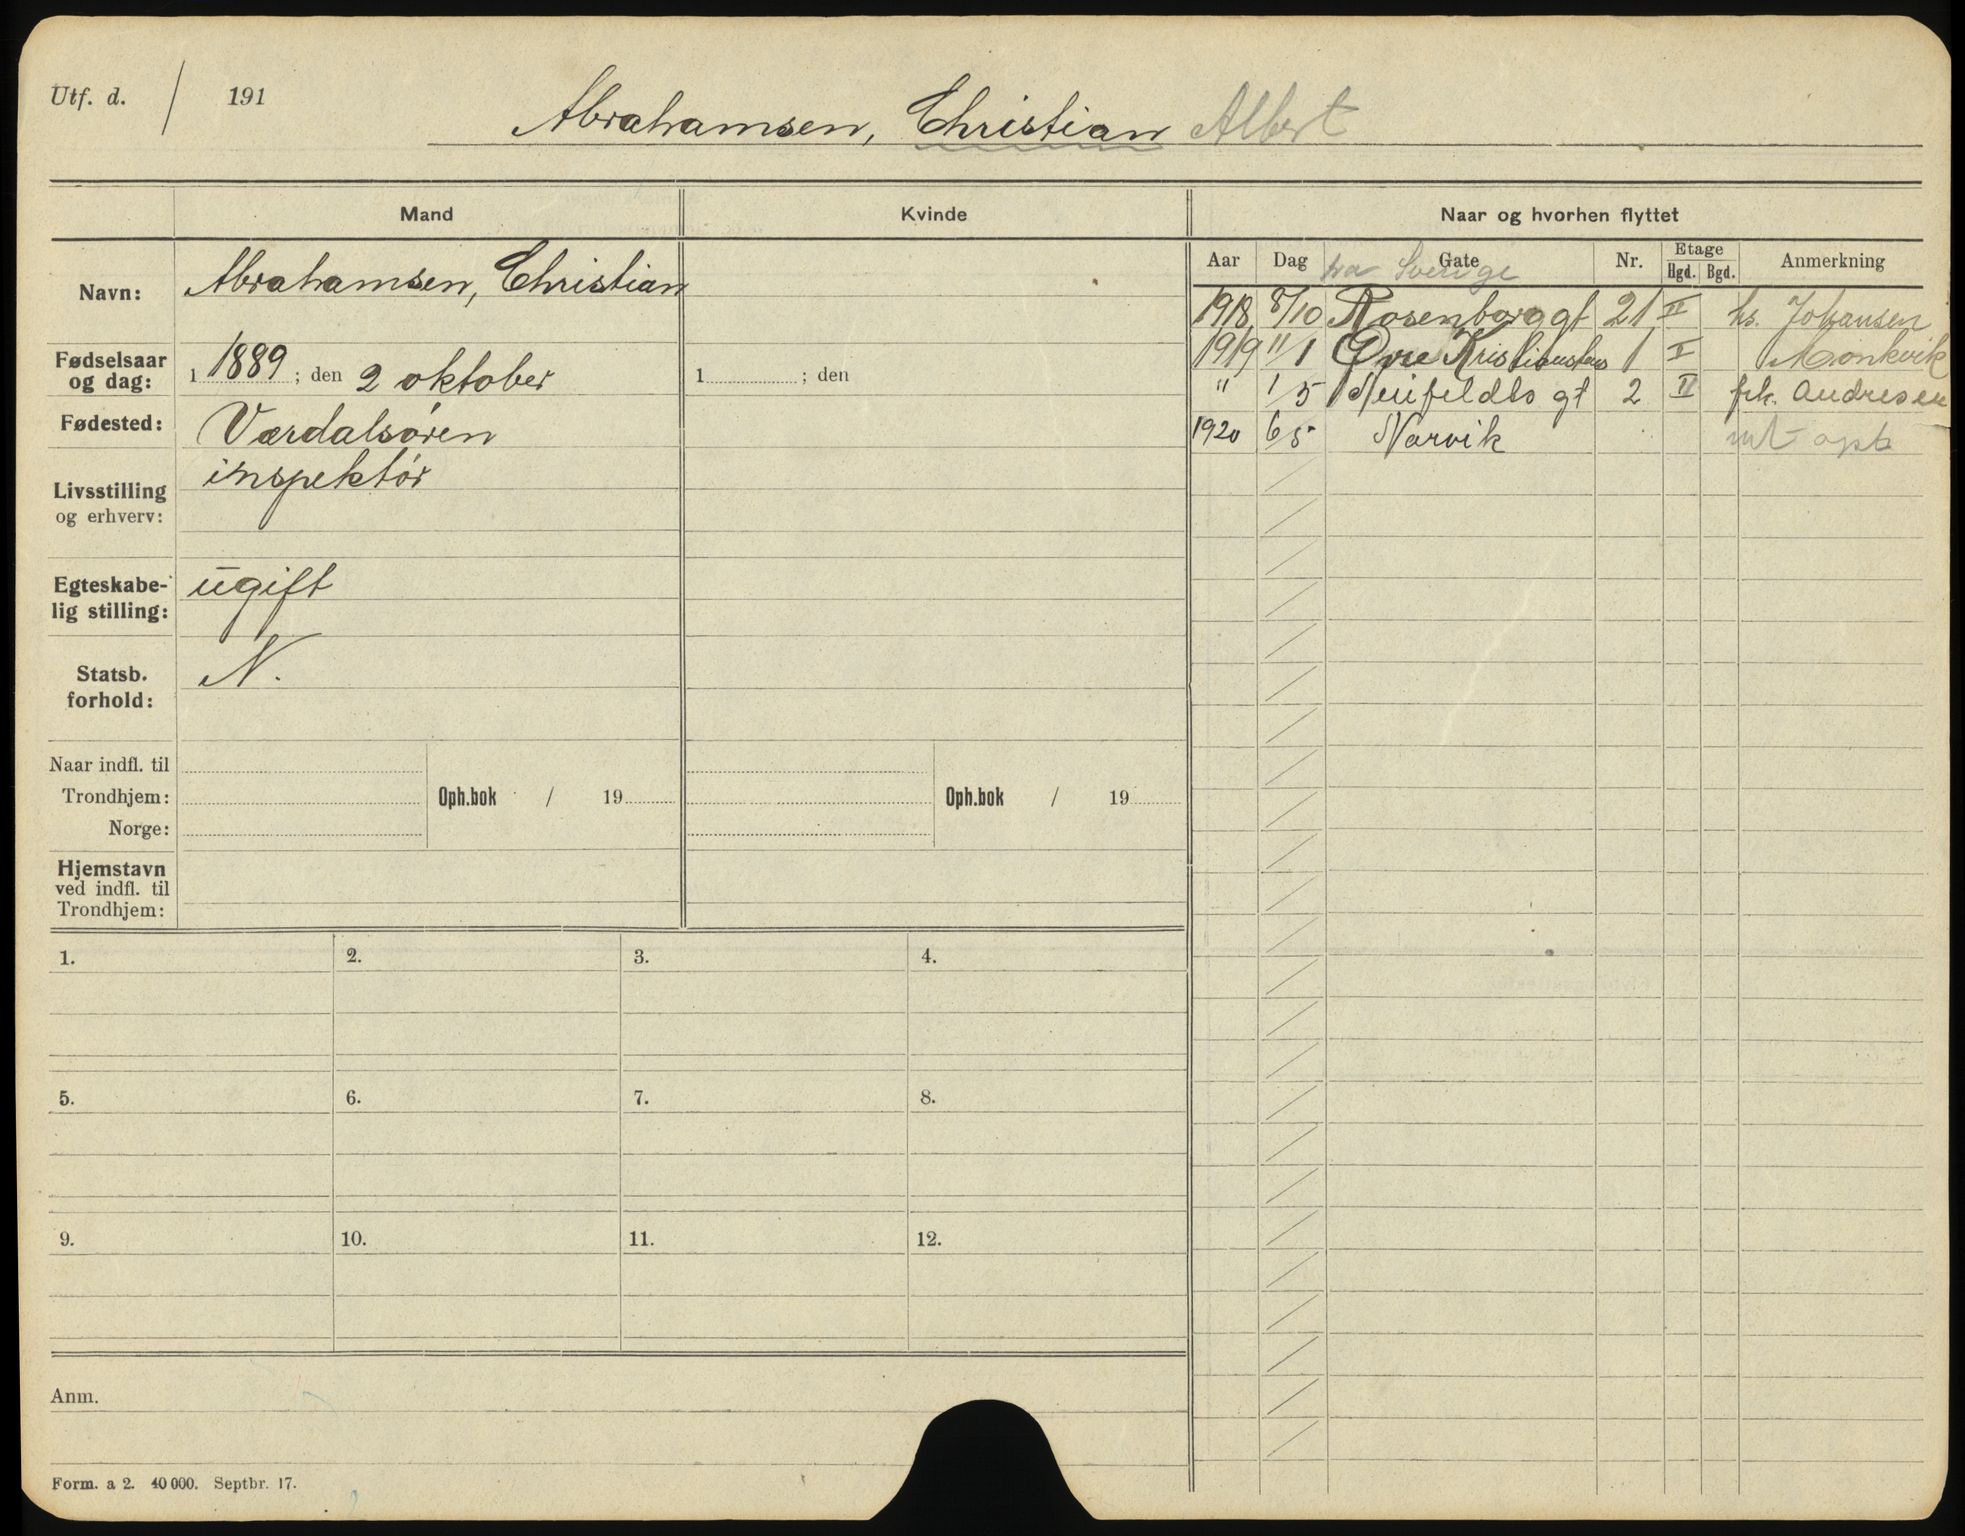 Utf. d. / 191
Abrahamsen, Christian Albert
Mand
Kvinde
Naar og hvorhen flyttet
Navn: Abrahamsen, Christian
Fødselsaar og dag: 1 1889; den 2 oktober
1 ; den
Fødested: Værdalsøren
Livsstilling og erhverv: inspektør
Egteskabelig stilling: ugift
Statsb. forhold: N.
Naar indfl. til
Trondhjem: Oph.bok / 19 Oph.bok / 19
Norge:
Hjemstavn
ved indfl. til
Trondhjem:
1. 2. 3. 4.
5. 6. 7. 8.
9. 10. 11. 12.
Anm.
Form. a 2. 40 000. Septbr. 17.
Aar Dag Gate Nr. Etage Hgd. Bgd. Anmerkning
fra Sverige
1918 8/10 Rosenborg gt 21 II hs. Johansen
1919 11/1 Øvre Kristiansten 1 I Monkvik
" 1/5 Neufeldts gt 2 II frk. Andresen
1920 6/5 Narvik